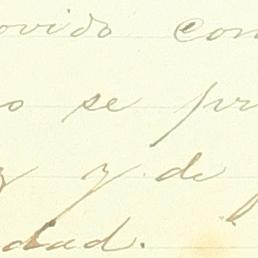 ovido con
o se pr
z y de
dad.